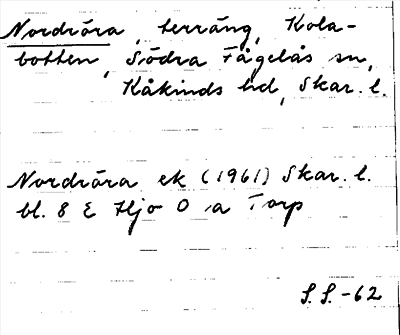 Nordröra, terräng, Kola-
botten, Södra Fågelås sn,
Kåkinds hd, Skar. l.
Nordröra ek (1961) Skar. l.
bl. 8 E Hjo O a Torp
S.S.-62